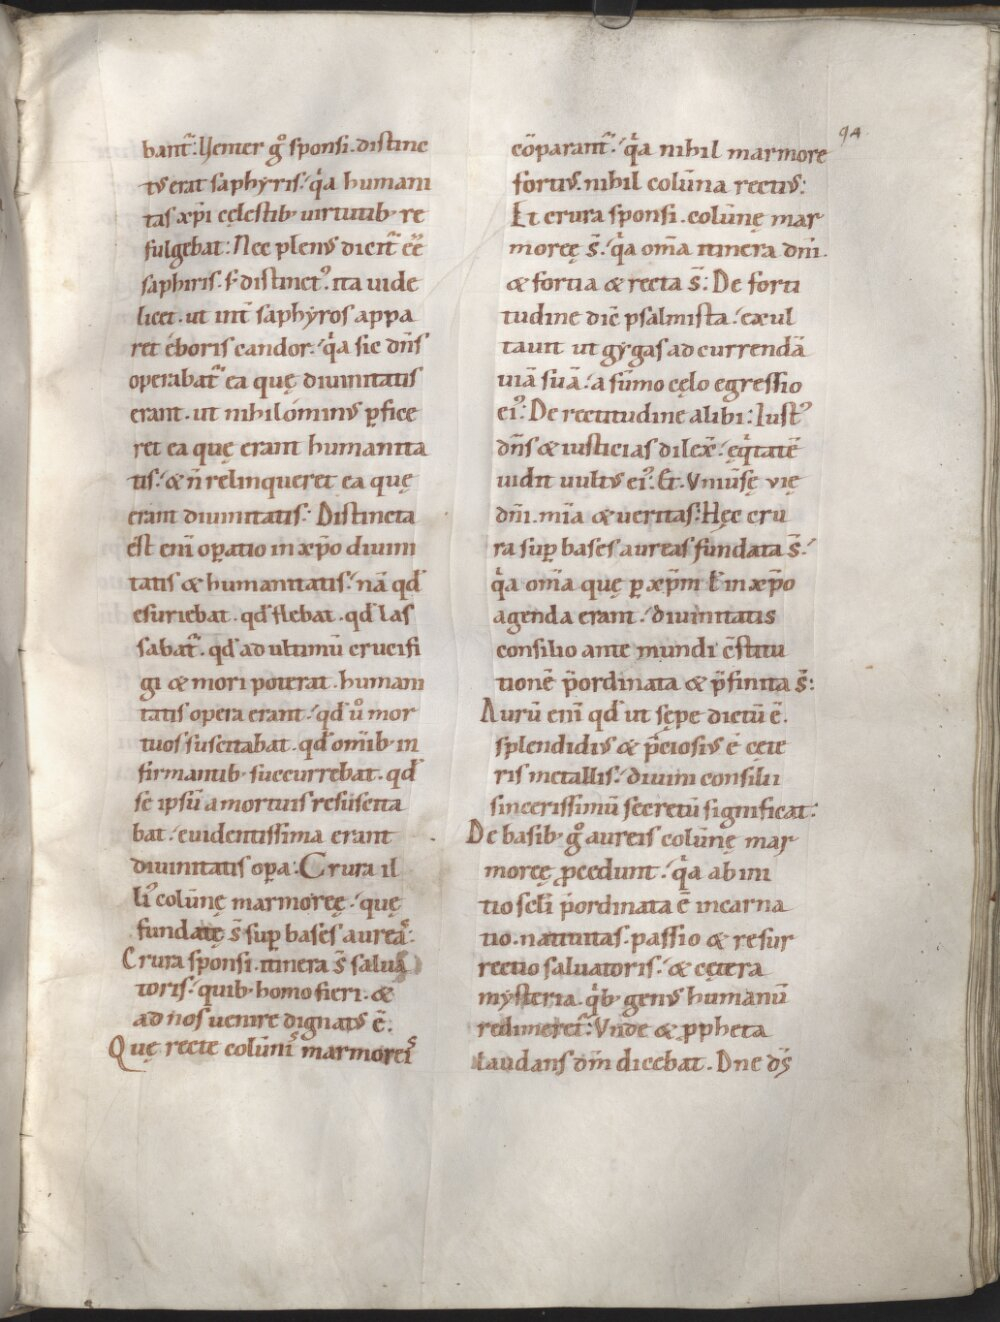 94
bant᷑: Venter g̊ sponsi. distinc
tus erat saphyris. q̓a humani
tas xp̄i cęlestib; uirtutib; re
fulgebat: Nec plenus dicit᷑ eē
saphiris. s; distinct᷒. ita uide
licet. ut int̄ saphyros appa
ret eboris candor. q̓a sic dn̄s
operabat᷑ ea quę diuinitatis
erant. ut nihilominus ꝑfice
ret ea quę erant humanita
tis. & n̄ relinqueret ea quę
erant diuinitatis: Distincta
est eni oꝑatio in xp̄o diuini
tatis & humanitatis. nā qd̄
esuriebat. qd̄ flebat. qd̄ las
sabat᷑. qd̄ ad ultimū crucifi
gi & mori poterat. humani
tatis opera erant. qd̄ ů mor
tuos suscitabat. qd̄ omīb; in
firmantib; succurrebat. qd̄
se ipsū a mortuis resuscita
bat. euidentissima erant
diuinitatis oꝑa: Crura il
li᷒ colūnę marmoreę. quę
fundatę s̄ suꝑ bases aureas:
Crura sponsi. itinera s̄ salua
toris. quib; homo fieri. &
ad nos uenire dignatus ē.
Quę recte colūnis marmoreis
cōparant᷑. q̓a nihil marmore
fortius. nihil colūna rectius:
Et crura sponsi. colūnę mar
moreę s̄. q̓a om̄a itinera dn̄i.
& fortia & recta s̄: De forti
tudine dic̄ psalmista. exul
tauit ut gygas ad currendā
uiā suā. a sūmo cęlo egressio
ei᷒: De rectitudine alibi: Iust᷒
dn̄s & iusticias dilex̄. ęq̓tatē
uidit uultus ei᷒. Et. Vniūsę vię
dn̄i. mīa & ueritas: Hęc cru
ra suꝑ bases aureas fundata s̄.
q̓a om̄a quę ꝑ xp̄m ł in xp̄o
agenda erant. diuinitatis
consilio ante mundi c̄stitu
tionē p̄ordinata & p̄finita s̄:
Aurū eni qd̄ ut sępe dictū ē.
splendidius & p̄ciosius ē cete
ris metallis. diuini consilii
sincerissimū secretū significat:
De basib; g̊ aureis colūnę mar
moreę ꝓcedunt. q̓a ab ini
tio scl̄i p̄ordinata ē incarna
tio. natiuitas. passio & resur
rectio saluatoris. & cętera
mysteria. q̓b; genus humanū
redimeret᷑: Vnde & ꝓpheta
laudans dn̄m dicebat. Dn̄e ds̄